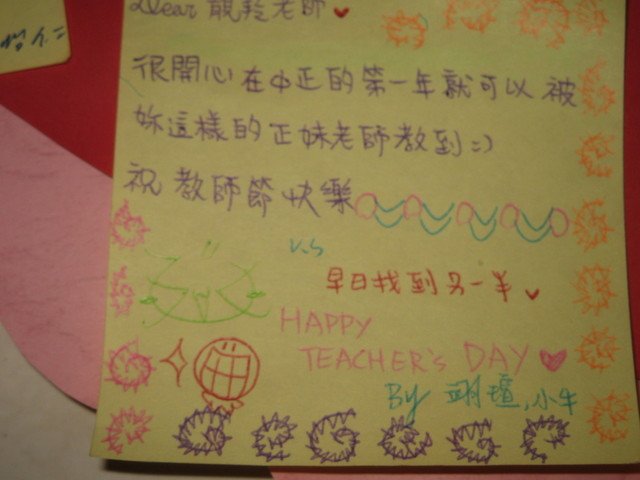 Dear 靚羚老師 ♥
很開心在中正的第一年就可以被
妳這樣的正妹老師教到=)
祝 教師節快樂
V.S
早日找到另一半 ♥
HAPPY
TEACHER'S DAY ♥
By 翊瑄,小牛